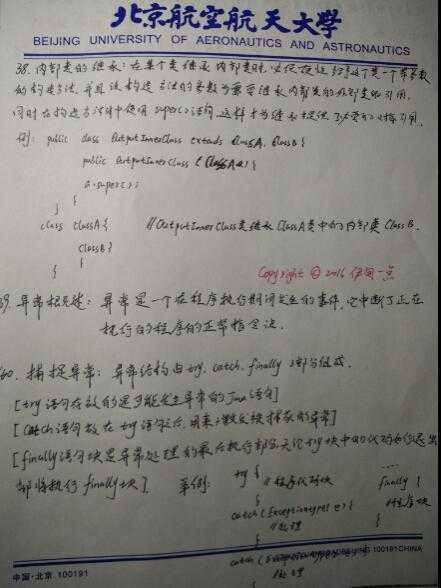 北京航空航天大學
BEIJING UNIVERSITY OF AERONAUTICS AND ASTRONAUTICS
38. 内部类的继承：在某个类继承内部类时，必须硬性给予这个类一个带参数
的构造方法，并且该构造方法的参数为需要继承内部类的外部类的引用，
同时在构造方法体中使用 super()语句，这样才为继承提供了必要的对象引用.
例: public class OutputInnerClass extends ClassA.ClassB{
public OutputInnerClass (ClassA a){
a.super();
}
}
class ClassA{ //OutputInnerClass类继承ClassA类中的内部类ClassB.
ClassB{
}
}
Copyright @ 2016 伊
一点
39. 异常概述: 异常是一个在程序执行期间发生的事件，它中断了正在
执行的程序的正常指令流.
40. 捕捉异常: 异常结构由try、catch、finally 3部分组成.
[try语句存放的是可能发生异常的Java语句]
[catch语句放在try语句之后，用来激发被捕获的异常]
[finally语句块是异常处理的最后执行部分，无论try块中的代码如何退出
都将执行finally块]. 举例: try {
//程序代码块
}
catch(Exceptiontype1 e){
//处理
}
catch(Exceptiontype2 e){
//处理
....
finally {
//程序块
}
中国·北京 100191
BEIJING 100191 CHINA